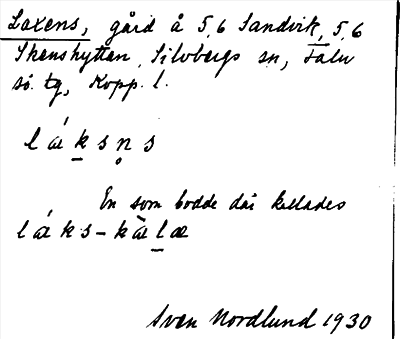 Laxens, gård å 5,6 Sandvik, 5,6
Skenshyttan, Silvbergs sn, Falu
sö. tg, Kopp. l.
lǽksn̥s
En som bodde där kallades
lǽks-kælæ
Sven Nordlund 1930